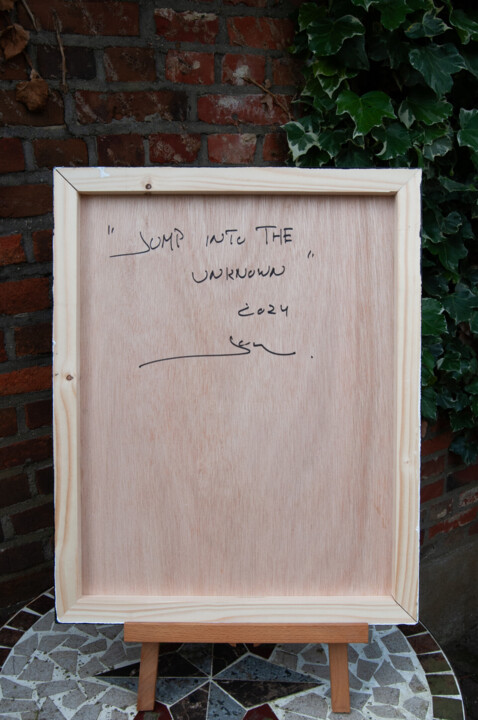 "JUMP INTO THE
UNKNOWN"
2024